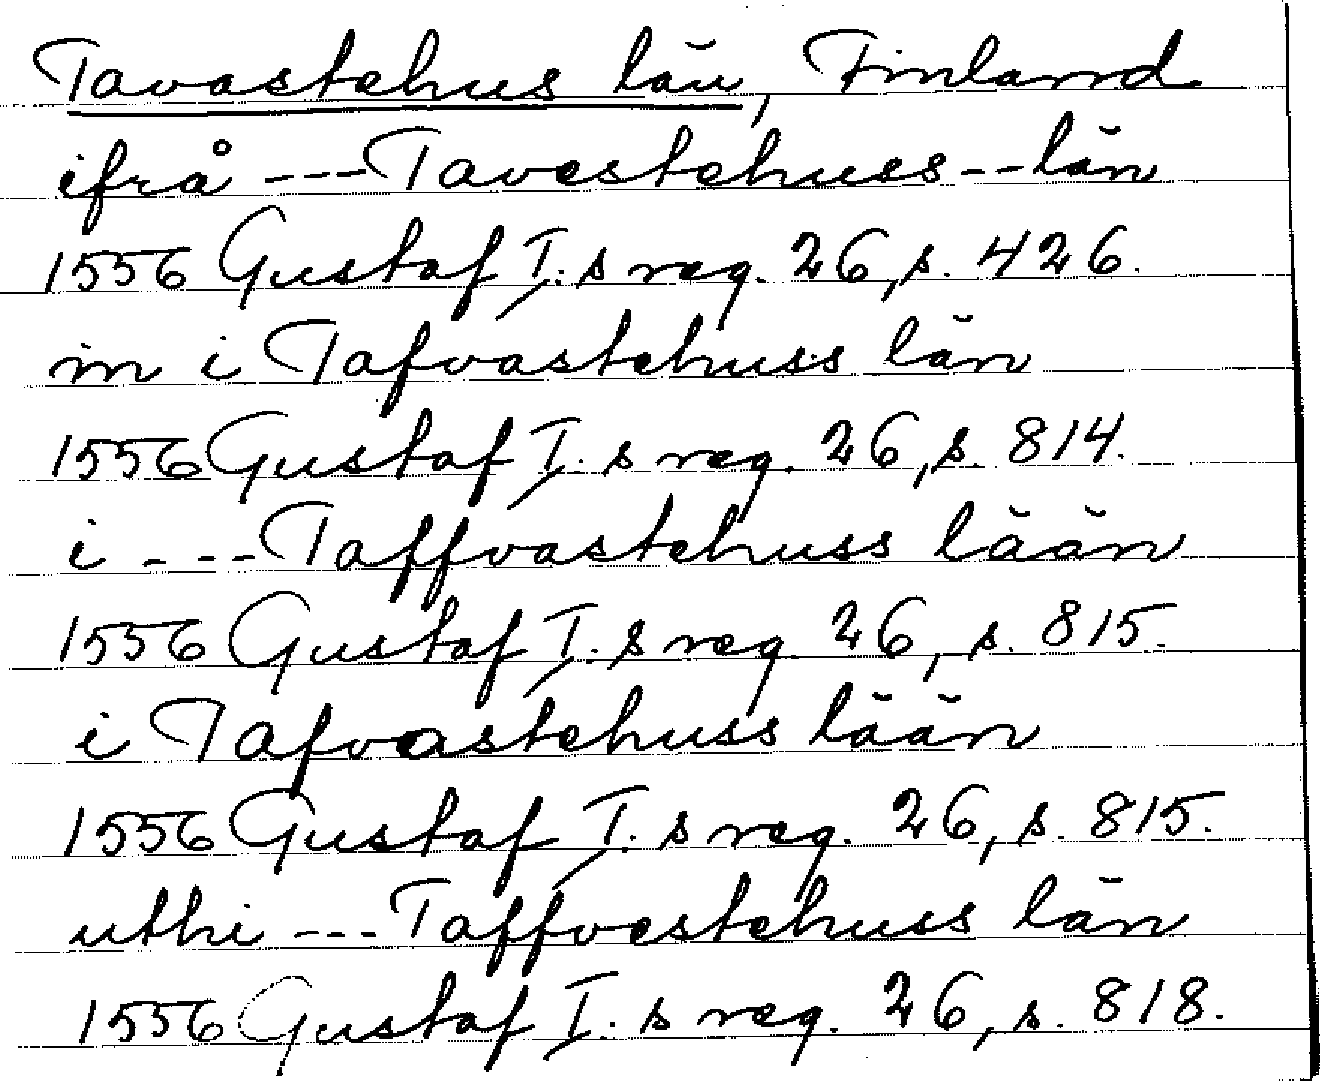 Tavastehus län, Finland
ifrå --- Tavestehuss -- län
1556 Gustaf I:s reg. 26, s. 426.
in i Tafvastehuss län
1556 Gustaf I:s reg. 26, s. 814.
i --- Taffvastehuss lään
1556 Gustaf I:s reg. 26, s. 815.
i Tafvastehuss lään
1556 Gustaf I:s reg. 26, s. 815.
uthi --- Taffvestehuss län
1556 Gustaf I:s reg. 26, s. 818.